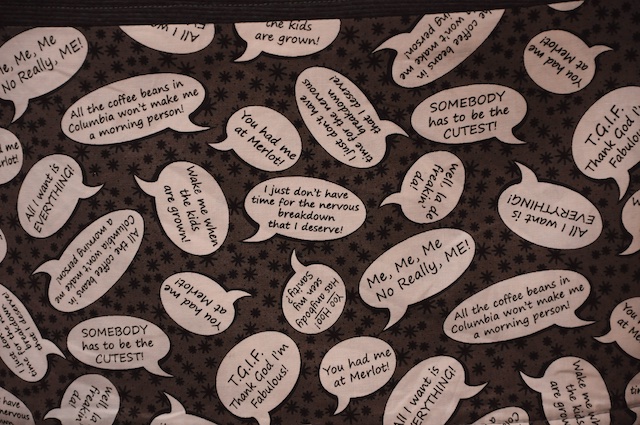 the kids
are grown!
All I w
the coffee beans in
a won't make me
ng person!
Me, Me, Me
No Really, ME!
You had me
at Merlot!
All the coffee beans in
Columbia won't make me
a morning person!
I just don't have
time for the nervous
breakdown
that I deserve!
SOMEBODY
has to be the
CUTEST!
T.G.I.F.
Thank God
Fabulou
You had me
at Merlot!
me
rlot!
All I want is
EVERYTHING!
Wake me when
the kids
are grown!
I just don't have
time for the nervous
breakdown
that I deserve!
well, la de
freakin'
da!
All I want is
EVERYTHING!
All the coffee beans in
Columbia won't make me
a morning person!
You had me
at Merlot!
Yoo Hoo!
has anybody
seen my
sanity?
Me, Me, Me
No Really, ME!
All the coffee beans in
Columbia won't make me
a morning person!
I just
time for the
breakdown
that I deserve!
SOMEBODY
has to be the
CUTEST!
T.G.I.F.
Thank God I'm
Fabulous!
You had me
at Merlot!
You
at
All I want is
EVERYTHING!
Wake me when
the kids
are grown!
have
nervous
n
well, la de
freakin'
da!